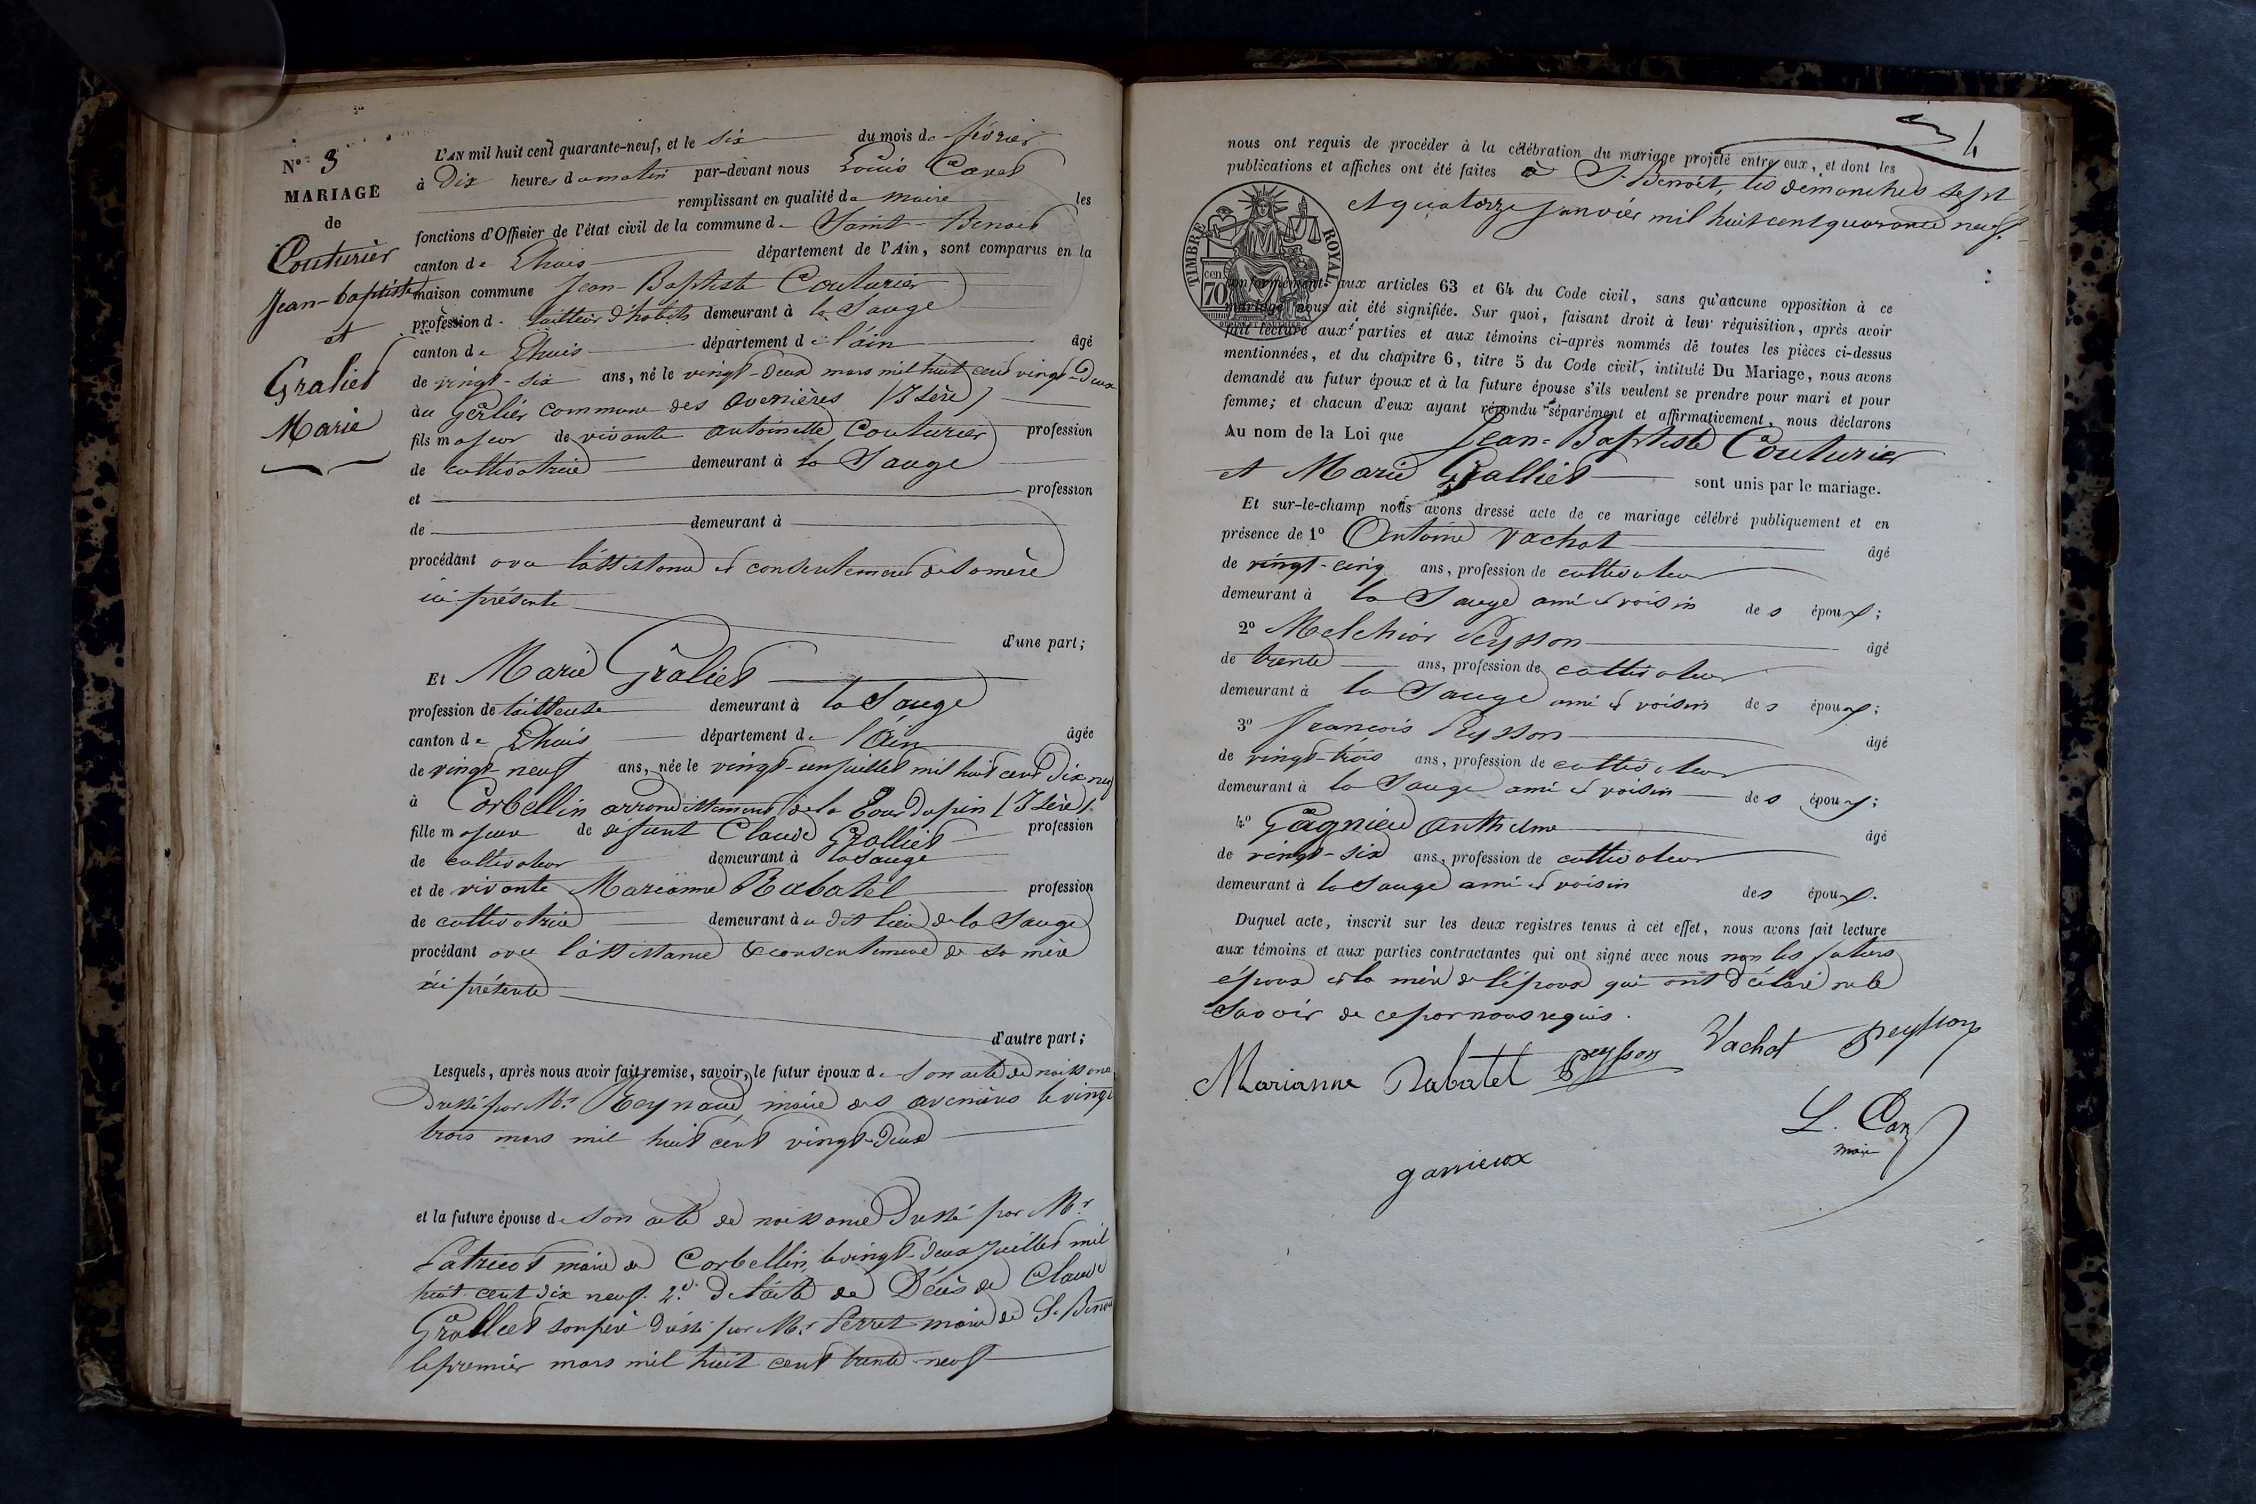 N° 3
MARIAGE
de
Couturier
Jean-baptiste
et
Graliet
Marie
L'AN mil huit cent quarante-neuf, et le six du mois de février
à Dix heures du matin par-devant nous Louis
remplissant en qualité de maire les
fonctions d'Officier de l'état civil de la commune de Saint-Benoit
canton de Lhuis département de l'Ain, sont comparus en la
maison commune Jean-Baptiste Couturier
profession de tailleur d'habits demeurant à la Sauge
canton de Lhuis département de l'ain âgé
de vingt-six ans, né le vingt-deux mars mil huit cent vingt-deux
au Gerlier commune des avenières (Isère)
fils majeur de vivante antoinette Couturier profession
de cultivatrice demeurant à la Sauge
et profession
de demeurant à
procédant avec l'assistance et consentement de sa mère
ici présente
d'une part;
Et Marie Graliet
profession de tailleuse demeurant à la Sauge
canton de Lhuis département de l'Ain âgée
de vingt-neuf ans, née le vingt-un juillet mil huit cent dix neuf
à Corbellin arrondissement de la Tour dupin (Isère).
fille majeure de défunt Claude Grolliet profession
de cultivateur demeurant à la Sauge
et de vivante Marianne Rabatel profession
de cultivatrice demeurant à u dit lieu de la Sauge
procédant avec l'assistance & consentement de sa mère
ici présente
d'autre part;
Lesquels, après nous avoir fait remise, savoir, le futur époux de son acte de naissance
dressé par Mr Reynaud, maire des avenières le vingt
trois mars mil huit cent vingt-deux
et la future épouse de son acte de naissance dressé par Mr
Patricot maire de Corbellin, le vingt-deux juillet mil
huit cent dix neuf. 2° de l'acte de Décès de Claude
Grolliet son père dressé par Mr Perret maire de St Benoit
le premier mars mil huit cent trente-neuf
4
nous ont requis de procéder à la célébration du mariage projeté entre eux, et dont les
publications et affiches ont été faites à St Benoit, les dimanches sept
et quatorze janvier mil huit cent quarante neuf.
TIMBRE ROYAL
70 cen
conformément aux articles 63 et 64 du Code civil, sans qu'aucune opposition à ce
mariage nous ait été signifiée. Sur quoi, faisant droit à leur réquisition, après avoir
fait lecture aux parties et aux témoins ci-après nommés de toutes les pièces ci-dessus
mentionnées, et du chapitre 6, titre 5 du Code civil, intitulé Du Mariage, nous avons
demandé au futur époux et à la future épouse s'ils veulent se prendre pour mari et pour
femme; et chacun d'eux ayant répondu séparément et affirmativement, nous déclarons
Au nom de la Loi que Jean-Baptiste Couturier
et Marie Gralliet sont unis par le mariage.
Et sur-le-champ nous avons dressé acte de ce mariage célébré publiquement et en
présence de 1° Antoine Vachot âgé
de vingt-cinq ans, profession de cultivateur
demeurant à la Sauge ami et voisin des époux;
2° Melchior Peysson âgé
de trente ans, profession de cultivateur
demeurant à la Sauge ami et voisin des époux;
3° françois Peysson âgé
de vingt-trois ans, profession de cultivateur
demeurant à la Sauge ami et voisin des époux;
4° Gagnieu Anthelme âgé
de vingt-six ans, profession de cultivateur
demeurant à la Sauge ami et voisin des époux.
Duquel acte, inscrit sur les deux registres tenus à cet effet, nous avons fait lecture
aux témoins et aux parties contractantes qui ont signé avec nous non les futurs
époux et la mère de l'époux qui ont déclaré ne le
savoir de ce par nous requis.
Marianne Rabatel Peysson Vachot Peysson
L.
maire